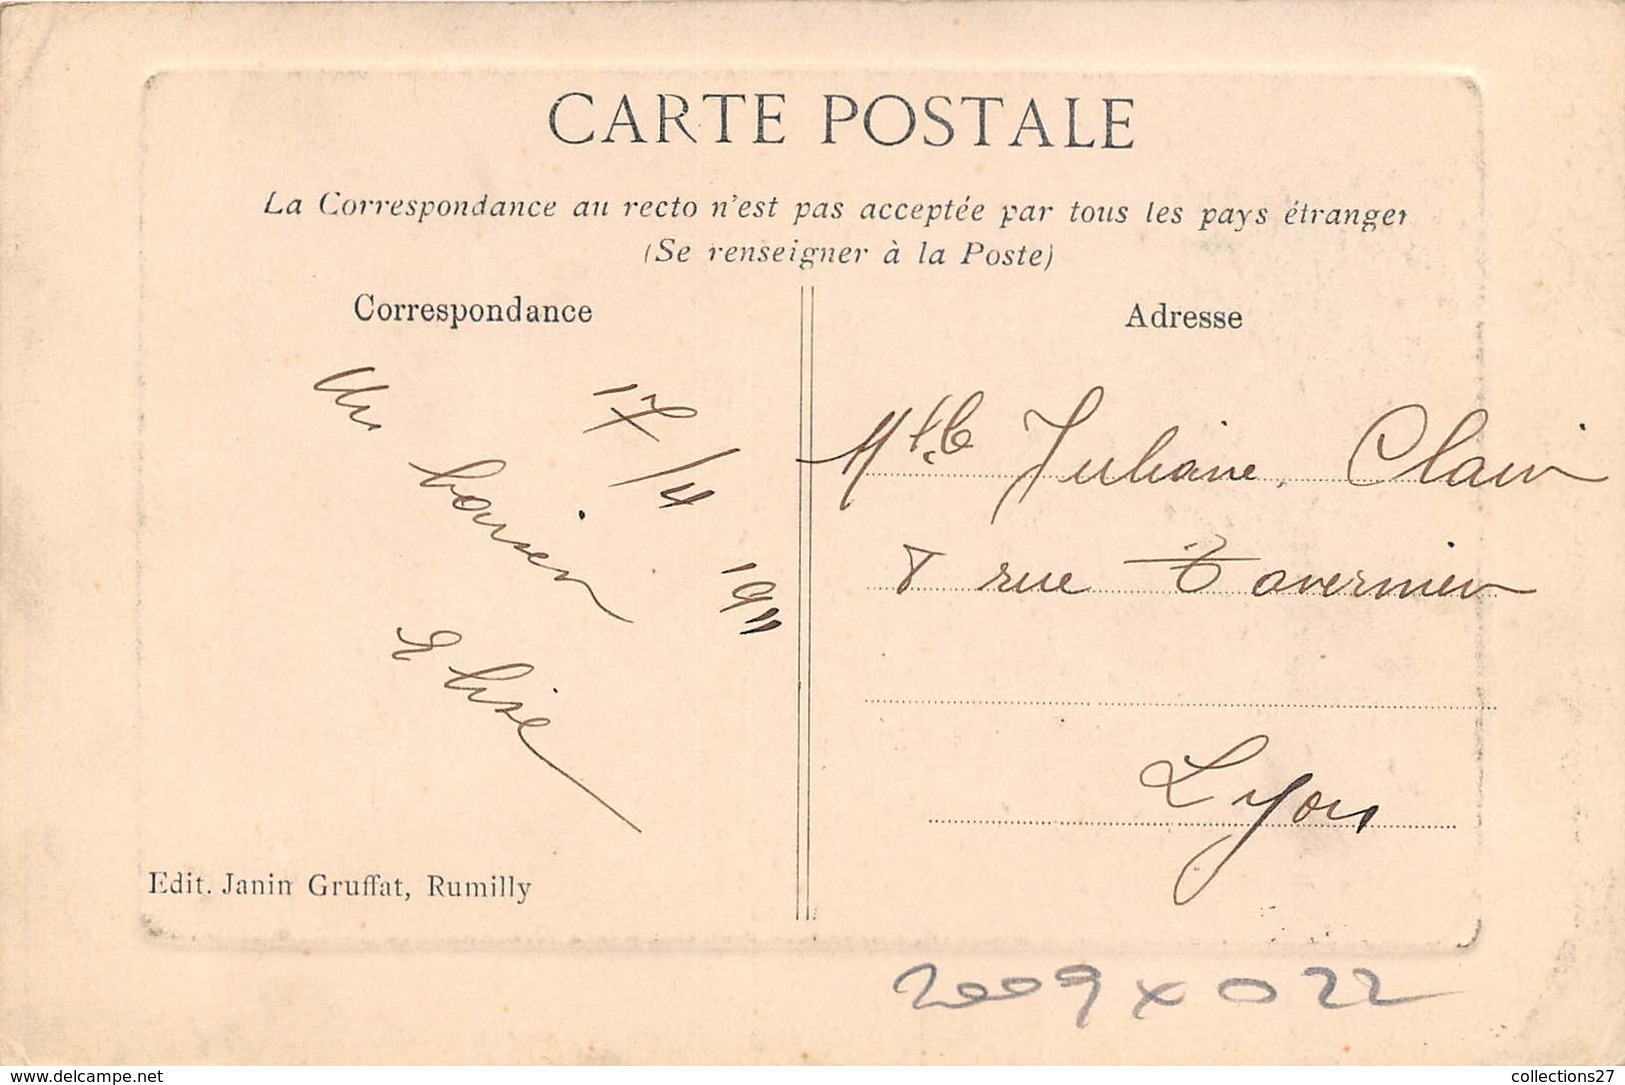 CARTE POSTALE
La Correspondance au recto n'est pas acceptée par tous les pays étranger
(Se renseigner à la Poste)
Correspondance
17/4 1911
Un
baiser
Elise
Edit. Janin Gruffat, Rumilly
Adresse
Mlle Juliane Clair
8 rue Tavernier
Lyon
2009 x 022
collections27